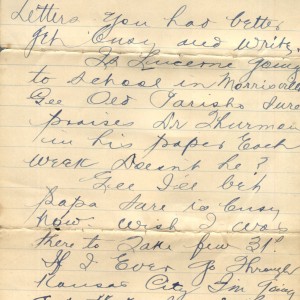 Letters you had better
get busy and write.
Is Lucerne going
to school in Morrisville
Gee Old Parish sure
praises Dr Thurman
in his paper Each
week Doesnt he?
Gee I'll bet
papa sure is busy
now. Wish I was
there to take few
If I Ever go Through
Kansas City I'm going